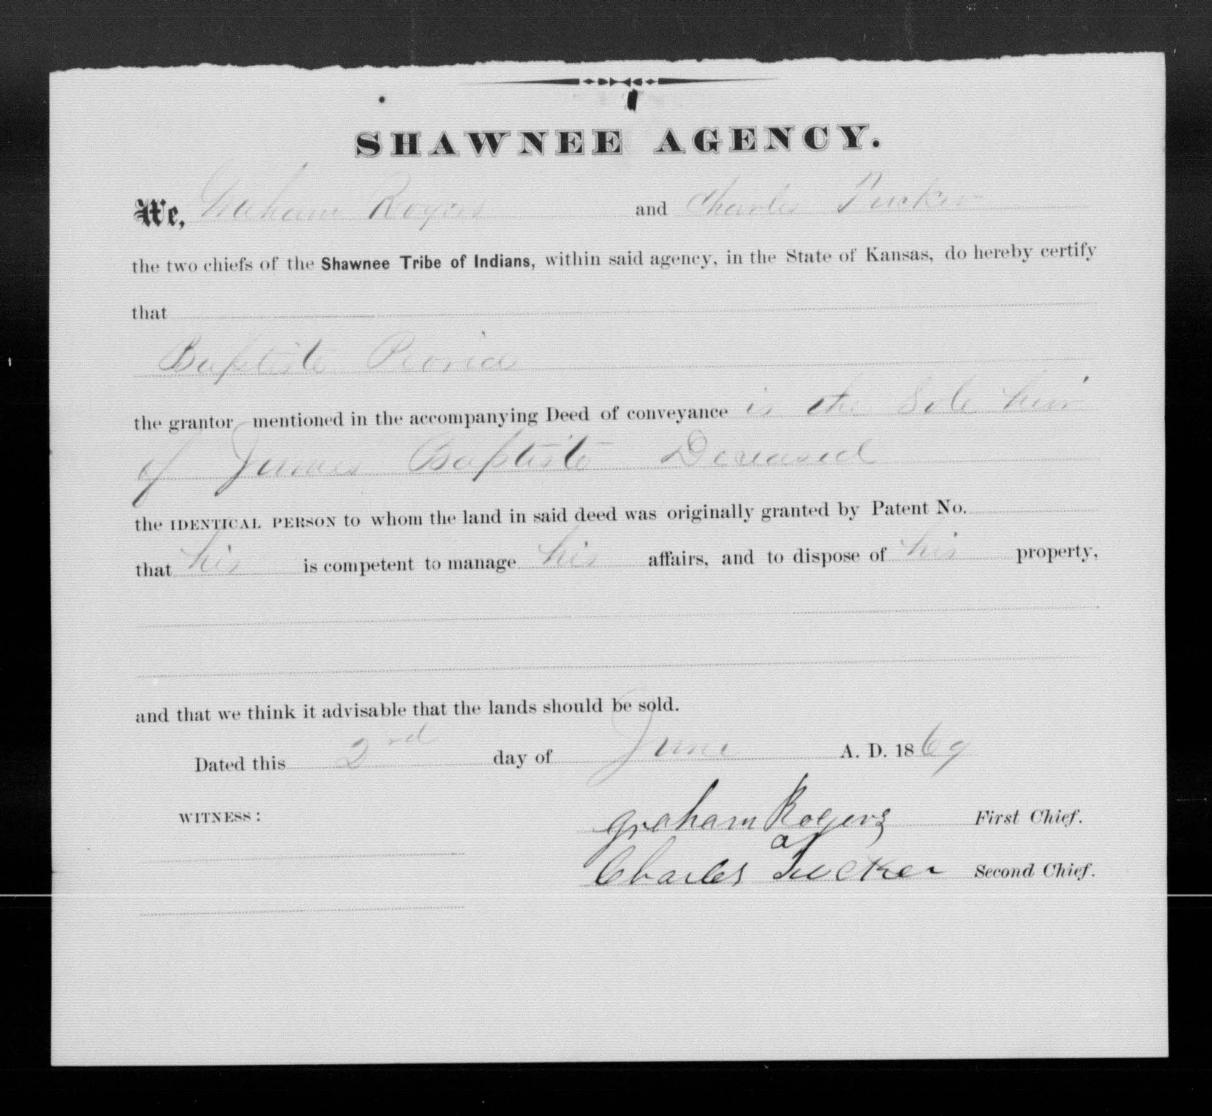 SHAWNEE AGENCY.
We, Graham Rogers and Charles Tucker
the two chiefs of the Shawnee Tribe of Indians, within said agency, in the State of Kansas, do hereby certify
that
Baptiste Peoria
the grantor mentioned in the accompanying Deed of conveyance is the Sole heir
of James Baptiste Deceased
the IDENTICAL PERSON to whom the land in said deed was originally granted by Patent No.
that his is competent to manage his affairs, and to dispose of his property,
and that we think it advisable that the lands should be sold.
Dated this 2nd day of June A. D. 1869
WITNESS:
graham Rogers First Chief.
Charles Tucker Second Chief.